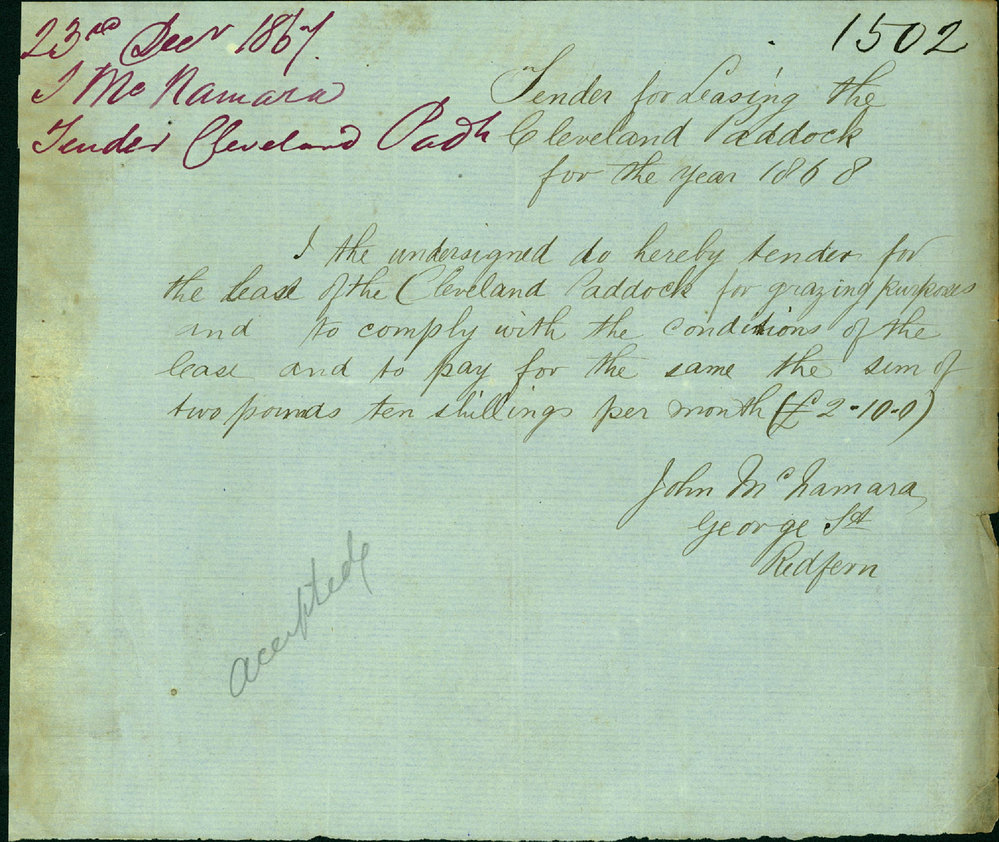 23rd Decr 1867
J McNamara
Tender Cleveland Padk
1502
Tender for Leasing the
Cleveland Paddock
for the year 1868
I the undersigned do hereby tender for
the lease of the Cleveland Paddock for grazing purposes
and to comply with the conditions of the
lease and to pay for the same the sum of
two pounds ten shillings per month (£2-10-0)
John McNamara
George St
Redfern
accepted